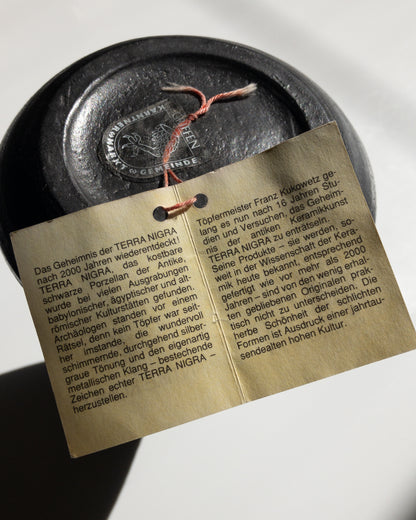 KÄRNTNER
GEMEINDE
Das Geheimnis der TERRA NIGRA
nach 2000 Jahren wiederentdeckt!
TERRA NIGRA, das kostbare
schwarze Porzellan der Antike
wurde bei vielen Ausgrabungen
babylonischer, ägyptischer und alt-
römischer Kulturstätten gefunden.
Archäologen standen vor einem
Rätsel, denn kein Töpfer war seit-
her imstande, die wundervoll
schimmernde, durchgehend silber-
graue Tönung und den eigenartig
metallischen Klang – bestechende
Zeichen echter TERRA NIGRA –
herzustellen.
Töpfermeister Franz Kukowetz ge-
lang es nun nach 16 Jahren Stu-
dien und Versuchen, das Geheim-
nis der antiken Keramikkunst
TERRA NIGRA zu enträtseln.
Seine Produkte – sie werden, so-
weit in der Wissenschaft der Kera-
mik heute bekannt, entsprechend
gefertigt wie vor mehr als 2000
Jahren – sind von den wenig erhal-
ten gebliebenen Originalen prak-
tisch nicht zu unterscheiden. Die
herbe Schönheit der schlichten
Formen ist Ausdruck einer jahrtau-
sendealten hohen Kultur.